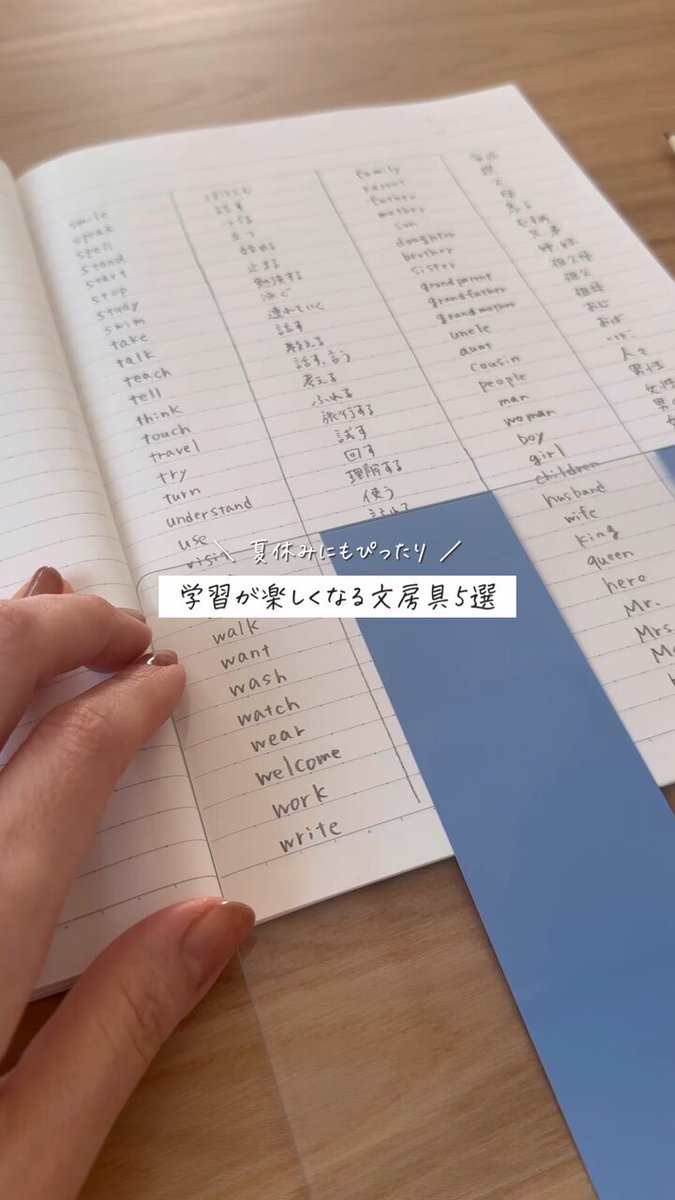 smile
speak
spell
stand
start
stop
study
swim
take
talk
teach
tell
think
touch
travel
try
turn
understand
use
visit
walk
want
wash
watch
wear
welcome
work
write
話す
つづる
立つ
始める
止まる
勉強する
泳ぐ
連れていく
話す
教える
話す、言う
考える
ふれる
旅行する
試す
回す
理解する
使う
family
parent
father
mother
son
daughter
brother
sister
grandparent
grandfather
grandmother
uncle
aunt
cousin
people
man
woman
boy
girl
children
husband
wife
king
queen
hero
Mr.
Mrs.
兄弟
姉妹
祖父母
祖父
祖母
おじ
おば
いとこ
人々
男性
女性
男の
\ 夏休みにもぴったり /
学習が楽しくなる文房具5選